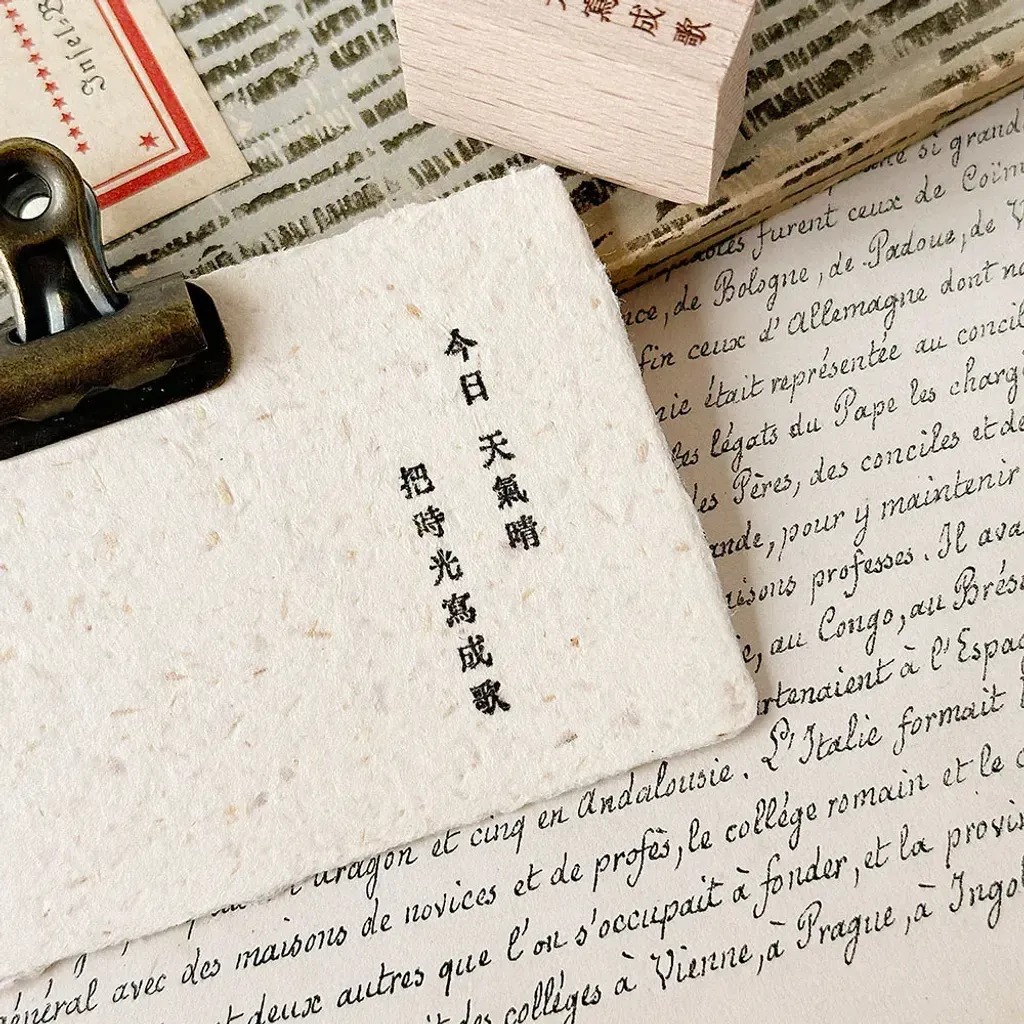 Insel-B
寫成歌
今日 天氣晴
把時光寫成歌
si grand
furent ceux de Coïm
de Bologne, de Padoue, de V
fin ceux d'Allemagne dont no
était représentée au concil
les légats du Pape les chargé
Pères, des conciles et de
pour y maintenir
professes. Il ava
au Congo, au Brési
rtenaient à l'Espag
et cinq en Andalousie. L'Italie formait l
général avec des maisons de novices et de profès, le collége romain et le c
deux autres que l'on s'occupait à fonder, et la provin
des colléges à Vienne, à Prague, à Ingol